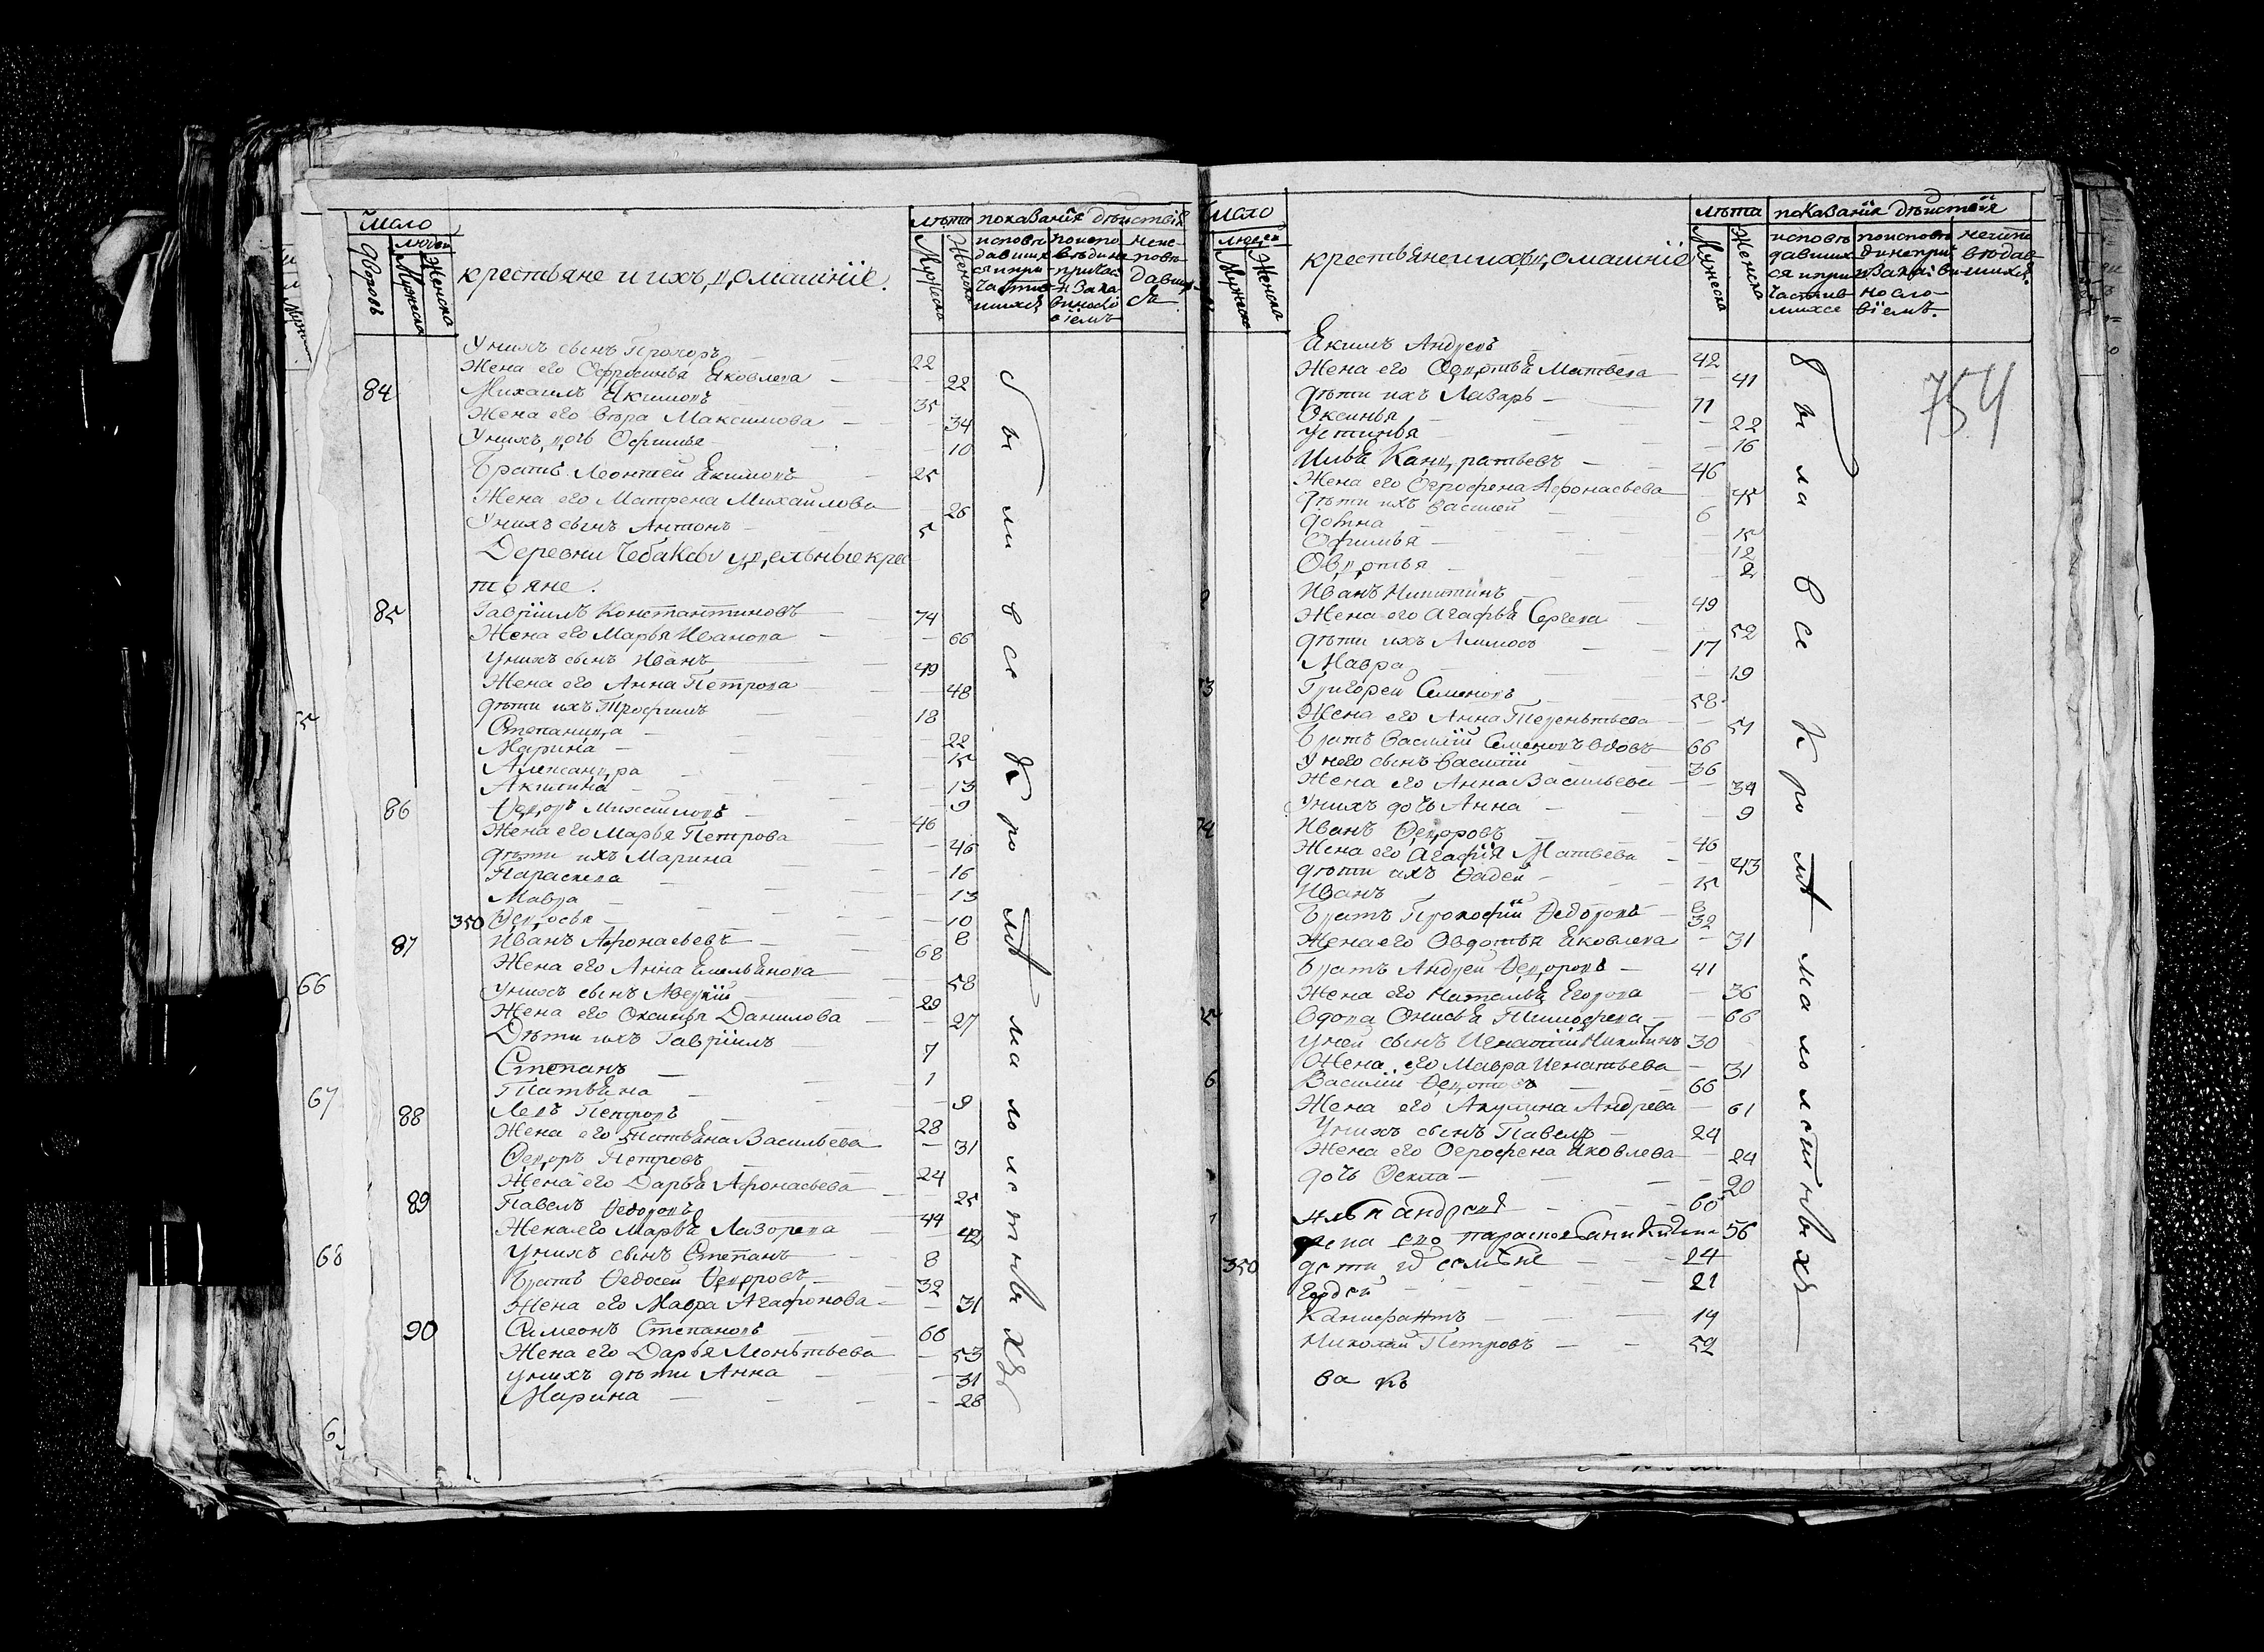 Число
Дворовъ
людей
Мужеска
Женска
крестьяне и ихъ домашнїе.
лѣта
Мужеска
Женска
показанїя дѣиствїя
исповѣ
давших
ся и при
частив
шихся
84
У нихъ сынъ Прохоръ 22
Жена его Офросинья Яковлева 22
Михаилъ Якимовъ 35
Жена его Вѣра Максимова 34
У нихъ дочь Офимья 10
Братъ Леонтей Якимовъ 25
Жена его Матрена Михаилова 26
У нихъ сынъ Антонъ 5
Деревни Чебаковы удѣльные крес
тьяне.
85 Гаврїилъ Константиновъ 74
Жена его Марья Иванова 66
У нихъ сынъ Иванъ 49
Жена его Анна Петрова 48
дѣти ихъ Трофимъ 18
Степанида 22
Марина 15
Александра 13
Акилина 9
86 Ѳедоръ Михаиловъ 46
Жена его Марья Петрова 46
дѣти ихъ Марина 16
Параскева 13
Мавра 10
350 Ѳедосья 8
87 Иванъ Афонасьевъ 68
Жена его Анна Емельянова 58
У нихъ сынъ Аверкїй 29
Жена его Оксинья Данилова 27
Дѣти ихъ Гаврїилъ 7
Степанъ 1
Татьяна 9
88 Левъ Петровъ 28
Жена его Татьяна Васильева 31
Ѳедоръ Петровъ 24
Жена его Дарья Афонасьева 25
89 Павелъ Ѳедоровъ 44
Жена его Марья Лазорева 42
У нихъ сынъ Степанъ 8
Братъ Ѳедосей Ѳедоровъ 32
Жена его Мавра Агафонова 31
90 Симеонъ Степановъ 66
Жена его Дарья Леонтьева 53
У нихъ дѣти Анна 31
Марина 28
были всѣ Кромѣ малолѣтныхъ
66
67
68
число
людей
Мужеска
Женска
крестьяне и ихъ домашнїе
лѣта
Мужеска
Женска
показанїя дѣиствїя
754
Екимъ Андреевъ 42
Жена его Овдотья Матвева 41
дѣти ихъ Лазарь 11
Оксинья 22
Устинья 16
Илья Кандратьевъ 46
Жена его Огрофена Афонасьева 45
дѣти ихъ Василей 6
Фотина 15
Офимья 12
Овдотья 2
Иванъ Никитинъ 49
Жена его Агафья Сергева 52
дѣти ихъ Алимов 17
Мавра 19
Григорей Семеновъ 58
Жена его Анна Терентьева 51
Братъ Василїй Семеновъ вдовъ 66
У него сынъ Василїй 36
Жена его Анна Васильева 34
У нихъ дочь Анна 9
Иванъ Ѳедоровъ 46
Жена его Агафїя Матвева 43
дѣти ихъ Ѳадей 15
Иванъ 8
Братъ Прокофїй Ѳедоровъ 32
Жена его Овдотья Яковлева 31
Братъ Андрей Ѳедоровъ 41
Жена его Наталья Егорова 36
Вдова Онисья Тимофеева 66
У ней сынъ Игнатїй Никитинъ 30
Жена его Мавра Игнатьева 31
Василїй Ѳедотовъ 66
Жена его Акулина Андрева 61
У нихъ сынъ Павелъ 24
Жена его Огрофена Яковлева 24
дочь Ѳекла 20
Илья Андреев 60
56
350 дети 24
Гордей 21
Канифантъ 19
Николай Петровъ 52
была всѣ Кромѣ малолѣтныхъ